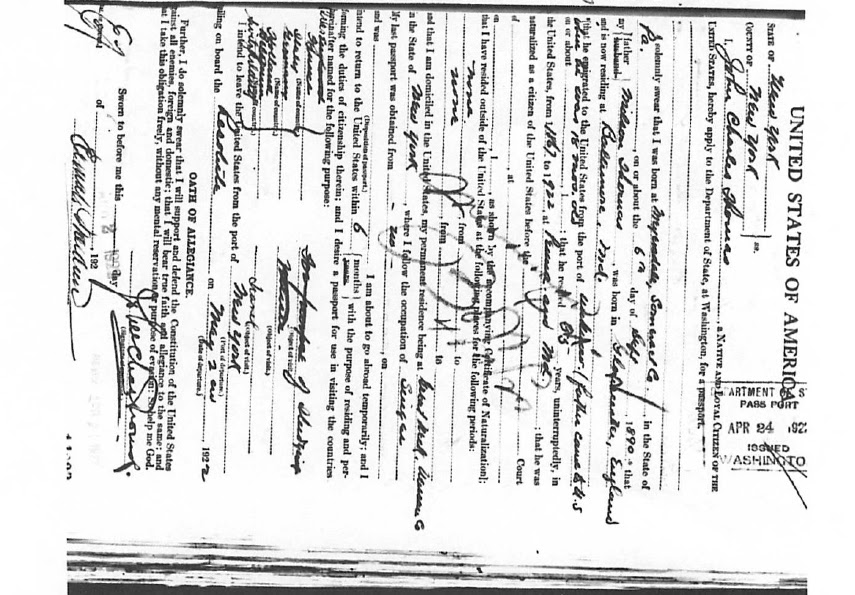 UNITED STATES OF AMERICA
STATE OF New York
COUNTY OF New York } ss.
ARTMENT OF ST
PASSPORT
APR 24 192
ISSUED
WASHINGTO
I, John Charles Thomas, a NATIVE AND LOYAL CITIZEN OF THE
UNITED STATES, hereby apply to the Department of State, at Washington, for a passport.
I solemnly swear that I was born at Meyersdale, Somerset Co, in the State of
Pa., on or about the 6th day of Sept, 1890, that
my father husband Milson Thomas, was born in England
and is now residing at Baltimore, Md.
that he emigrated to the United States from the port of father came to U.S
on or about when was mos. old; that he resided 65 years, uninterruptedly, in
the United States, from 1867 to 1922, at Penna and Md; that he was
naturalized as a citizen of the United States before the Court
of , at
on , 1 , as shown by the accompanying Certificate of Naturalization];
that I have resided outside of the United States at the following places for the following periods:
none from to
none from to
and that I am domiciled in the United States, my permanent residence being at
in the State of New York, where I follow the occupation of Singer
My last passport was obtained from - no - , on
and was (Disposition of passport.) I am about to go abroad temporarily; and I
intend to return to the United States within 6 {months years} with the purpose of residing and per-
forming the duties of citizenship therein; and I desire a passport for use in visiting the countries
hereafter named for the following purpose:
France for purpose of studying
(Name of country.) (Object of visit.)
Italy Germany Music
(Name of country.) (Object of visit.)
Holland
Switzerland
(Name of country.) (Object of visit.)
I intend to leave the United States from the port of New York
(Port of departure.)
sailing on board the Resolute on May 2nd 1922
(Date of departure.)
OATH OF ALLEGIANCE.
Further, I do solemnly swear that I will support and defend the Constitution of the United States
against all enemies, foreign and domestic; that I will bear true faith and allegiance to the same; and
that I take this obligation freely, without any mental reservation or purpose of evasion: So help me God.
John Charles Thomas.
Sworn to before me this day
of , 192